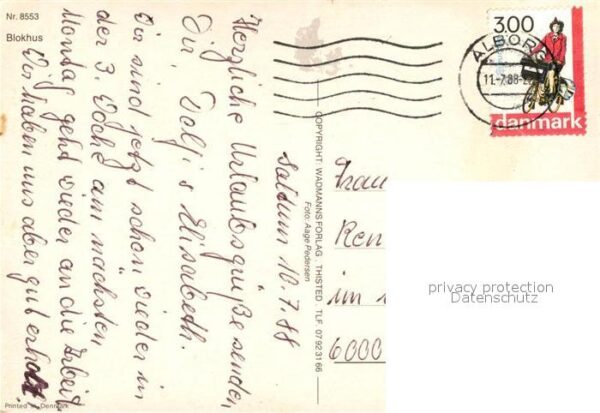 Nr. 8553
Blokhus
3.00
danmark
ALBORG
11.-7.88-
Saltum 10.7.88
Herzliche Urlaubsgrüße senden
Dir, Detj's Elisabeth.
Wir sind jetzt schon wieder in
der 3. Woche am nächsten
Montag geht wieder an die Arbeit
Wir haben uns aber gut erholt.
COPYRIGHT: WADMANNS FORLAG . THISTED . TLF. 07923166
Foto: Aage Pedersen
Frau
Ren
im
6000
privacy protection
Datenschutz
Printed in Denmark